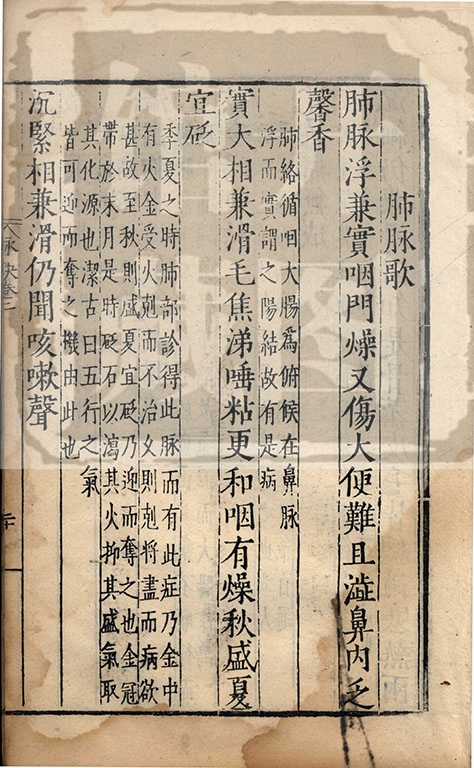 肺脉歌
肺脉浮兼實咽門燥又傷大便難且澁鼻内乏
馨香
肺絡循咽大腸為腑候在鼻脉
浮而實謂之陽結故有是病
實大相兼滑毛焦涕唾粘更和咽有燥秋盛夏
宜砭
季夏之時肺部診得此脉而有此症乃金中
有火金受火剋而不治久則剋將盡而病欲
甚故至秋則盛夏宜砭乃迎而奪之也金冠
帶於末月是時砭石以瀉其火抑其盛氣取
其化源也潔古曰五行之氣
皆可迎而奪之機由此也
沉緊相兼滑仍聞咳嗽聲
脉訣卷二